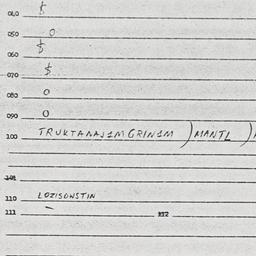 010 $
050 0
060 $
070 $
080 0
090 0
100 TRUKTANAJEMGRINEM ) MANTL )
101
110 LOZISONSTIN
111 — 112